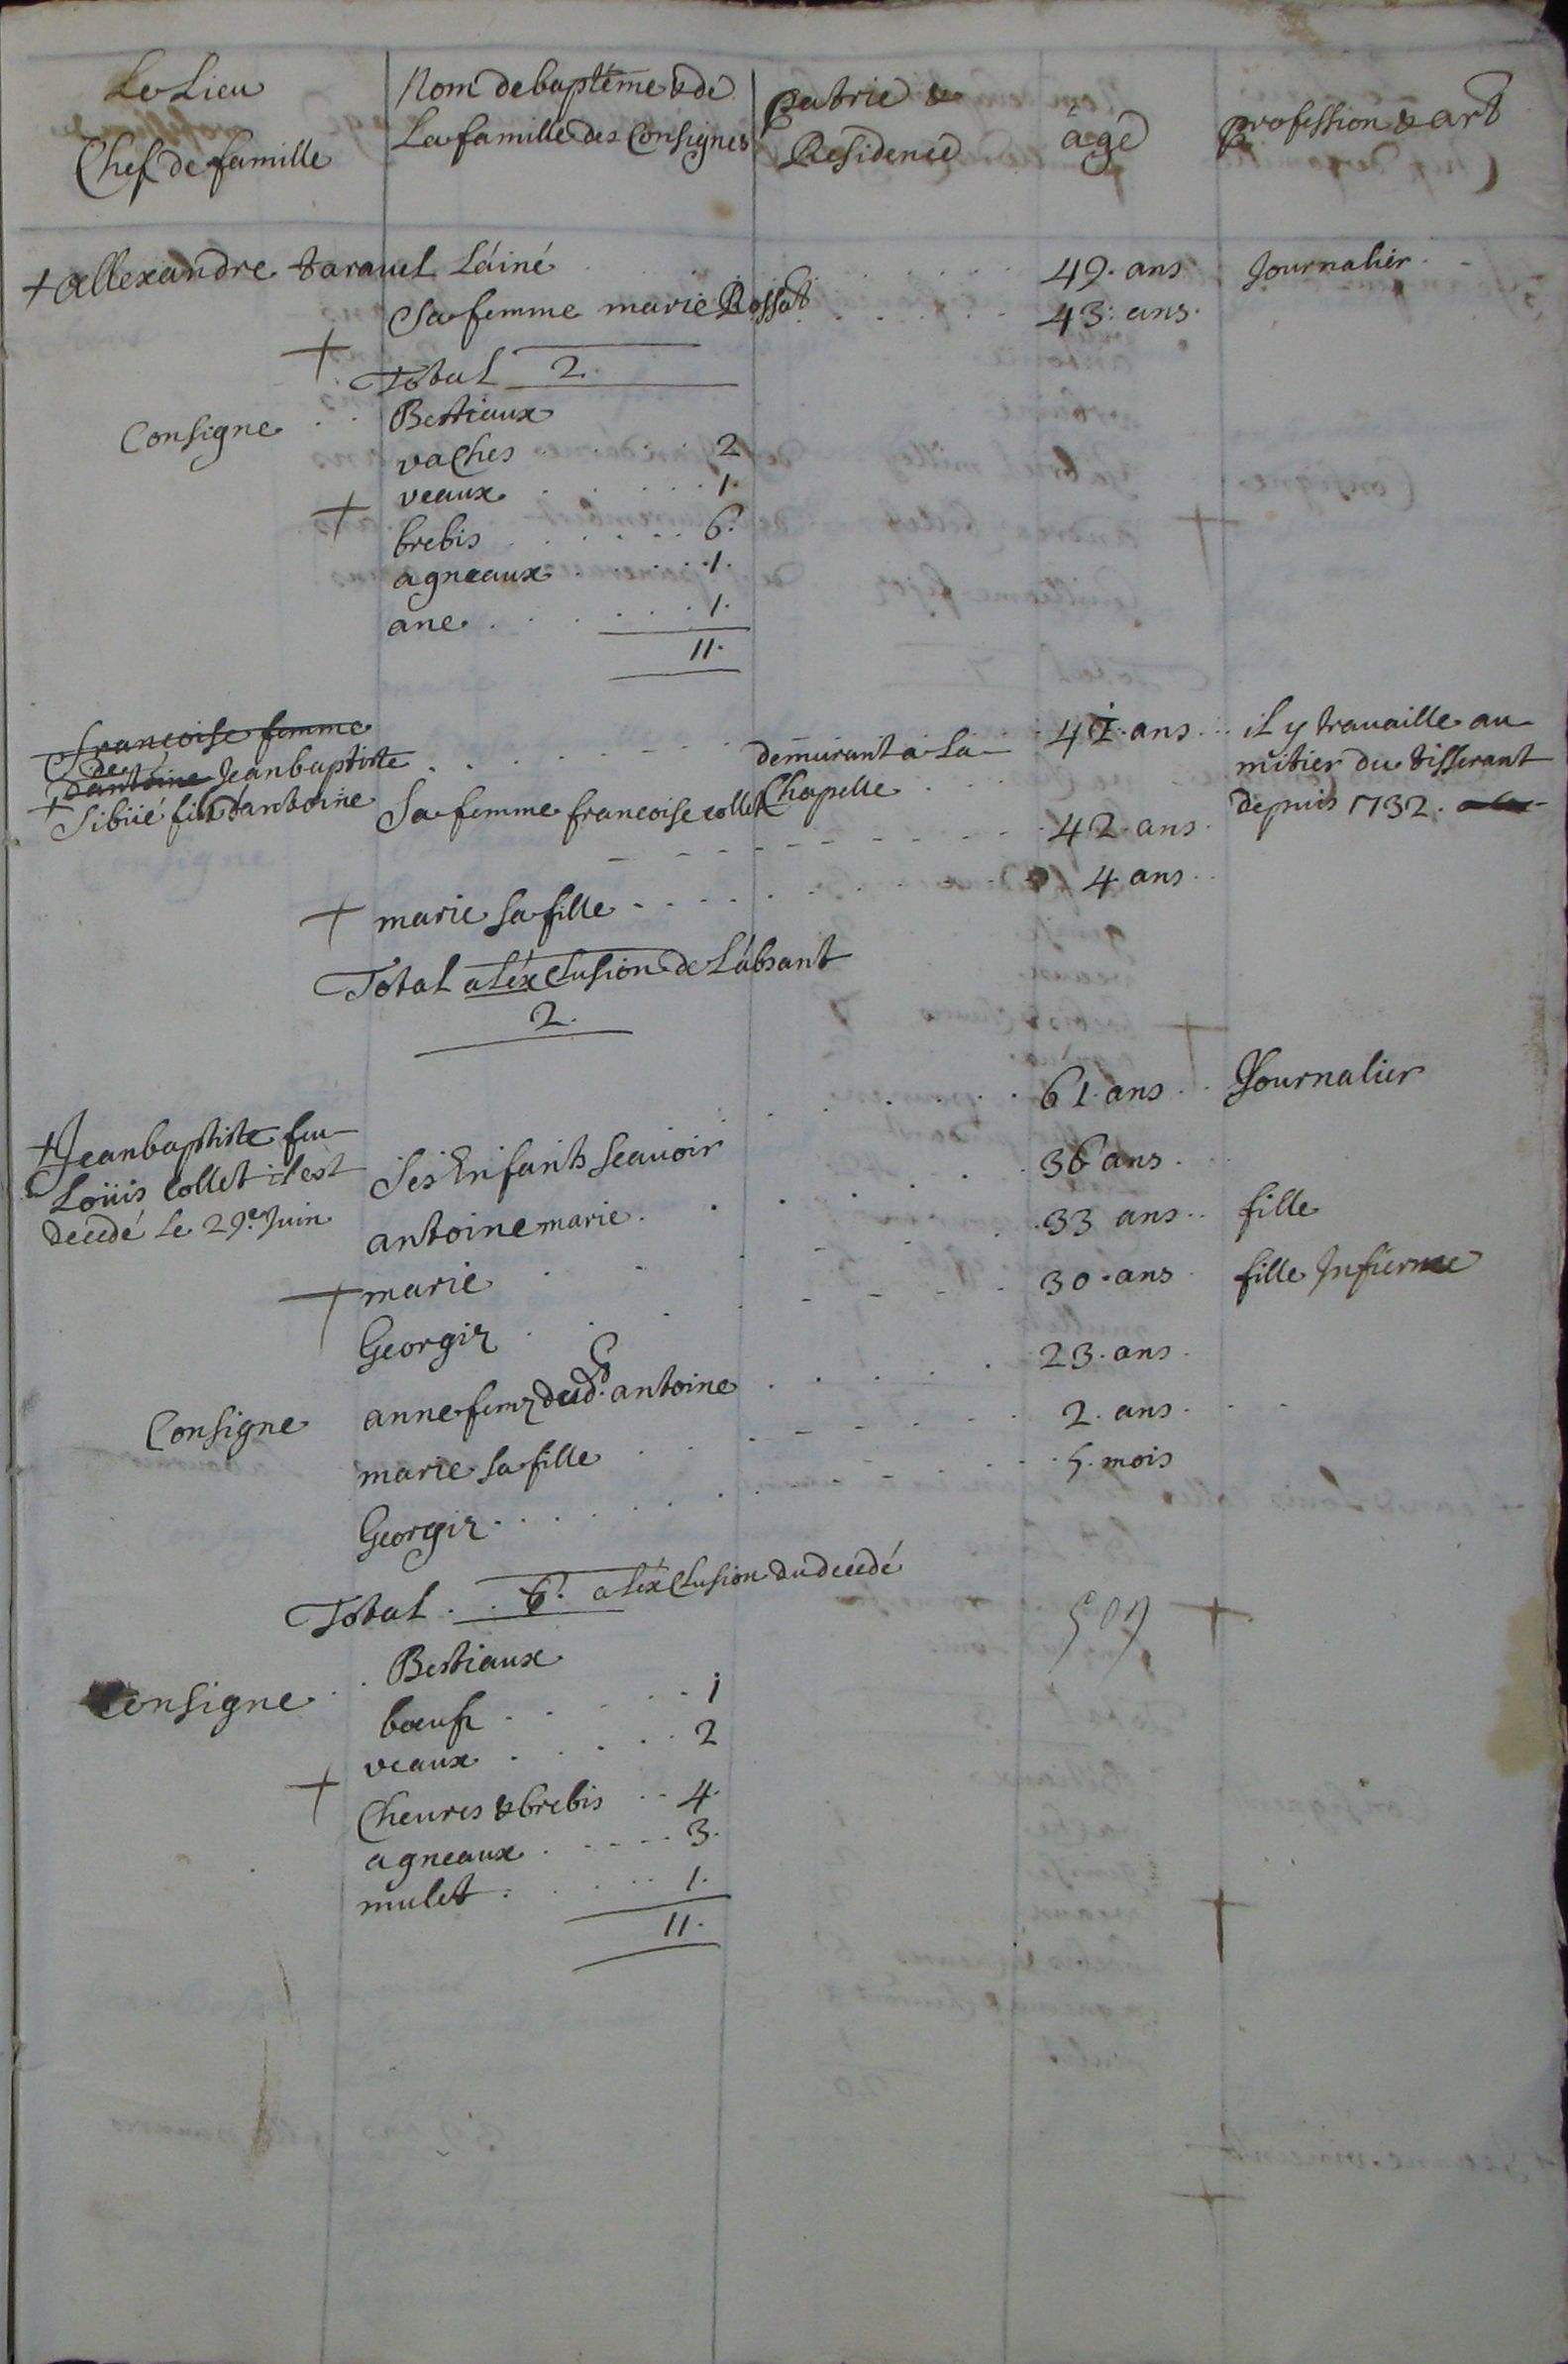 Le Lieu
Chef de famille
Nom de baptéme & de
La famille des Consignes
patrie &
Residence
age
profession & art
+ allexandre taravel Láiné 49. ans Journalier
Sa femme marie Rossat 43. ans
+
Total 2.
Consigne Bestiaux
vaches 2
veaux 1.
+
brebis 6.
agneaux 1.
ane 1.
11.
francoise femme
de
dantoine Jeanbaptiste demeurant a La 41. ans il y travaille au
+ Sibüé fils dantoine Sa femme francoise collet Chapelle mitier du tisserant
depuis 1732.
42 ans
+ marie sa fille 4 ans
Total a Léxclusion de Lábsant
2.
+ Jeanbaptiste feu 61. ans Journalier
Loüis collet il est Ses Enfants scavoir
decedé Le 29.e Juin antoine marie 36 ans
+ marie 33 ans fille
Georgiz 30. ans fille Infierme
anne femz dud.t antoine 23. ans
Consigne
marie sa fille 2. ans
Georgiz 5. mois
Total 6. a Léxclusion du decedé
509
Bestiaux
Consigne
bœufz 1
veaux 2
+
Cheures & brebis 4.
agneaux 3.
mulet 1.
11.